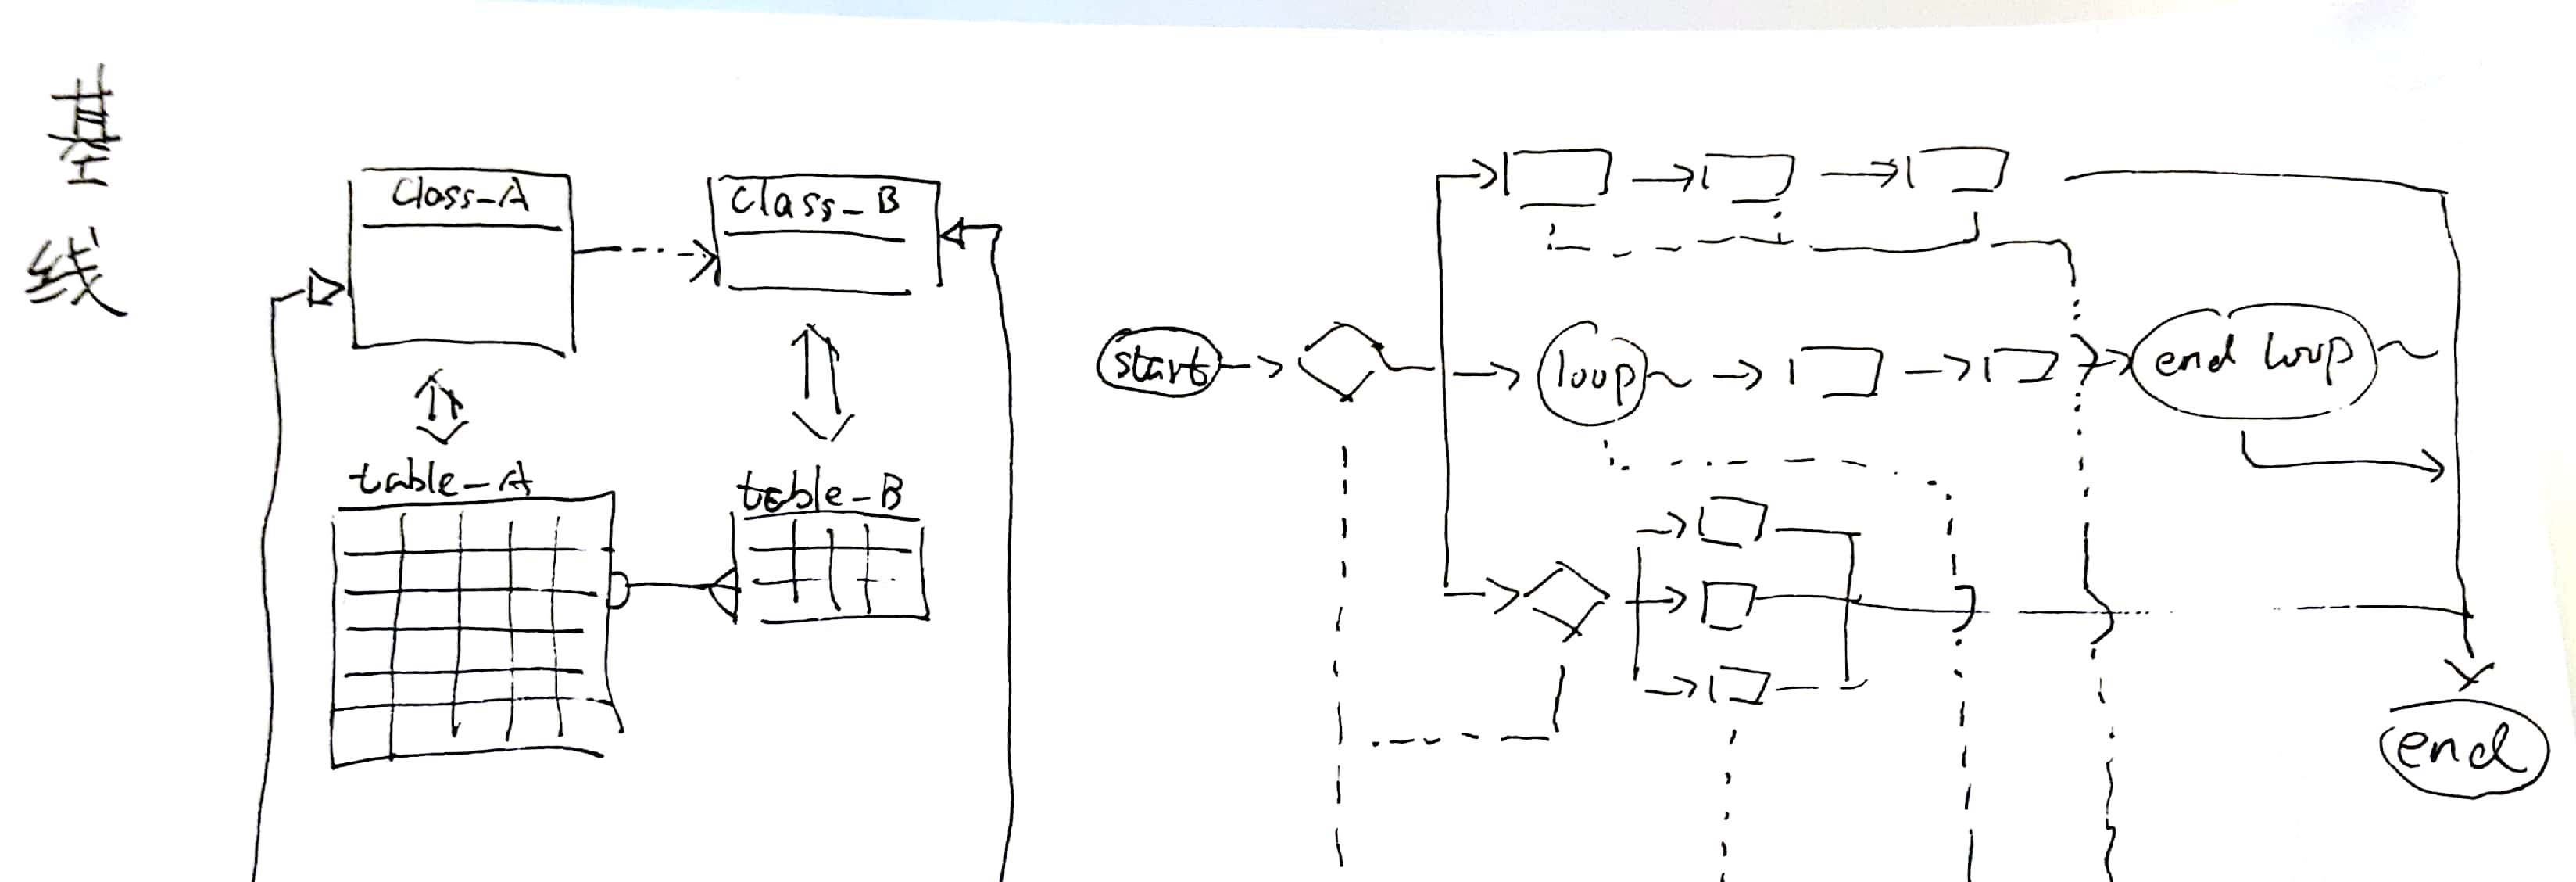 基线
class_A
class_B
table_A
table_B
start
loop
end loop
end